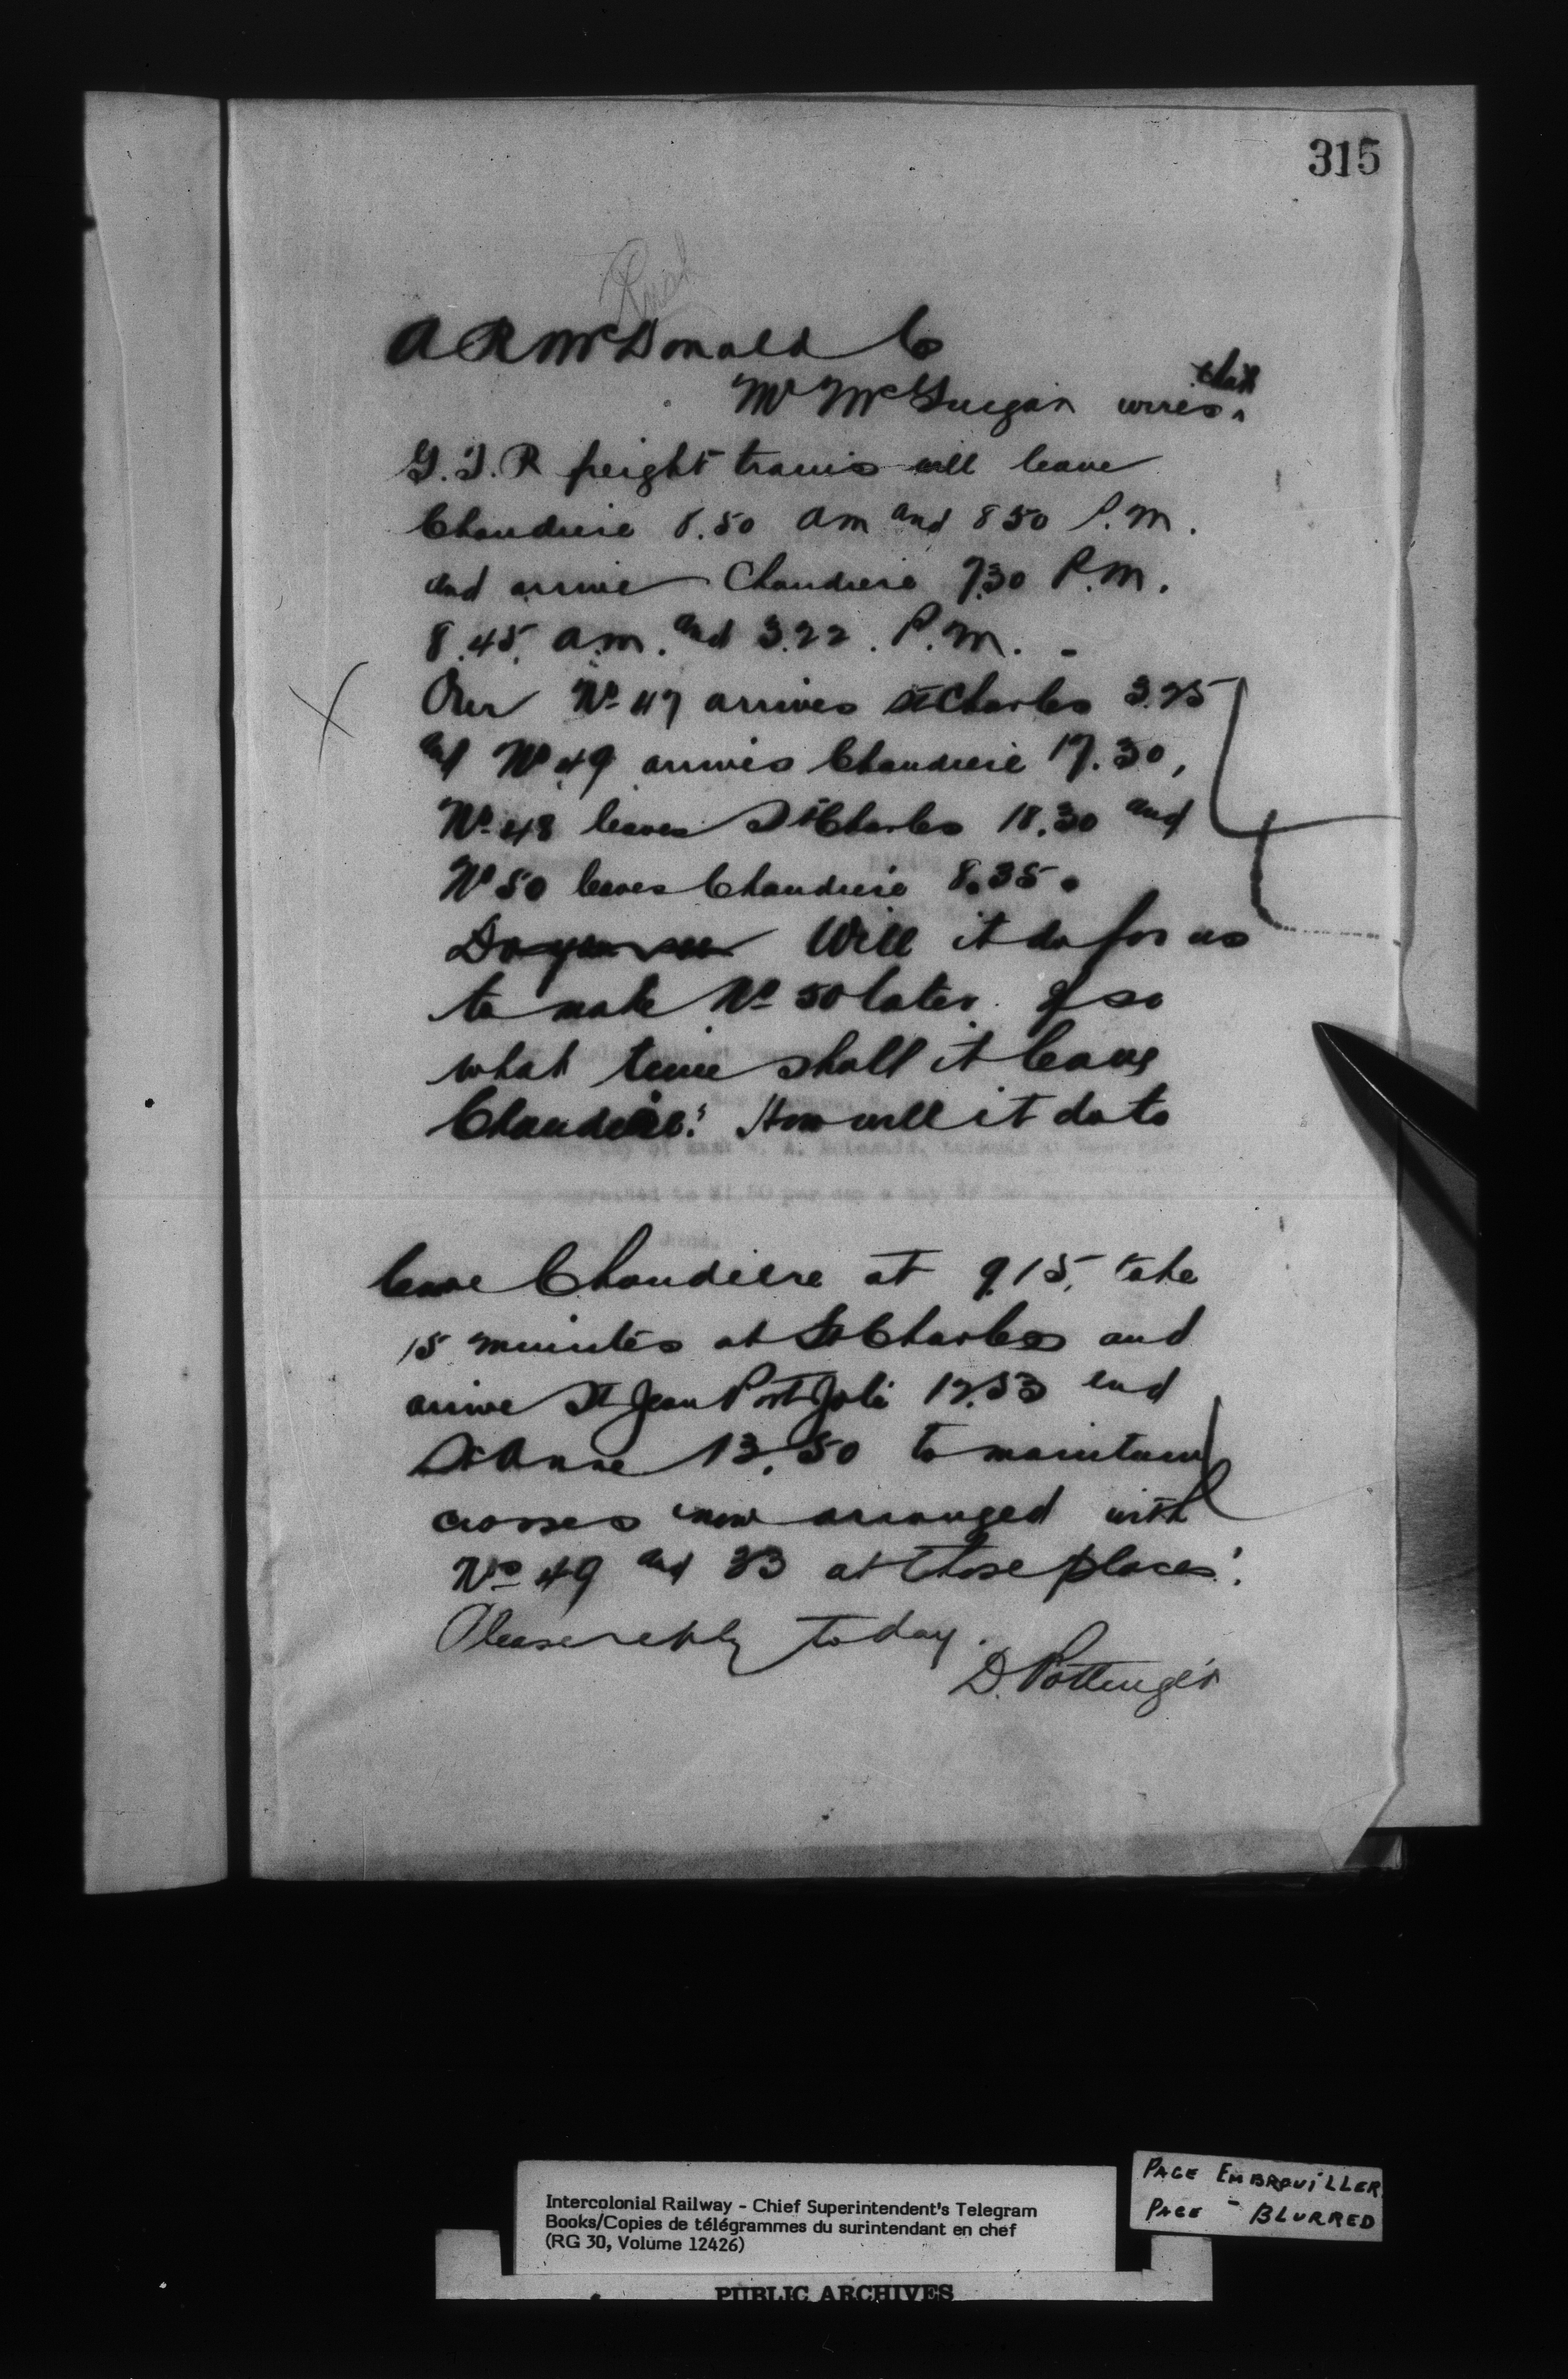 315
Rush
A R McDonald Co
Mr McGuigan wires that
G.T.R freight trains will leave
Chaudiere 8.50 am and 8 50 P.M.
and arrive Chaudiere 7.30 P.M.
8.45. a.m. and 3.22. P.M. -
Our No 47 arrives St Charles 3.25
and No 49 arrives Chaudiere 17.30,
No 48 leaves St Charles 18.30 and
No 50 leaves Chaudiere 8.35.
Do you see Will it do for us
to make No 50 later. If so
what time shall it leave
Chaudiere? How will it do to
leave Chaudiere at 9.15, take
15 minutes at St Charles and
arrive St Jean Port Joli 12.53 and
St Anne 13.50 to maintain
crosses now arranged with
No 49 and 33 at those places?
Please reply today.
D. Pottinger
Intercolonial Railway - Chief Superintendent's Telegram
Books/Copies de télégrammes du surintendant en chef
(RG 30, Volume 12426)
PAGE EMBROUILLER
PAGE - BLURRED
PUBLIC ARCHIVES